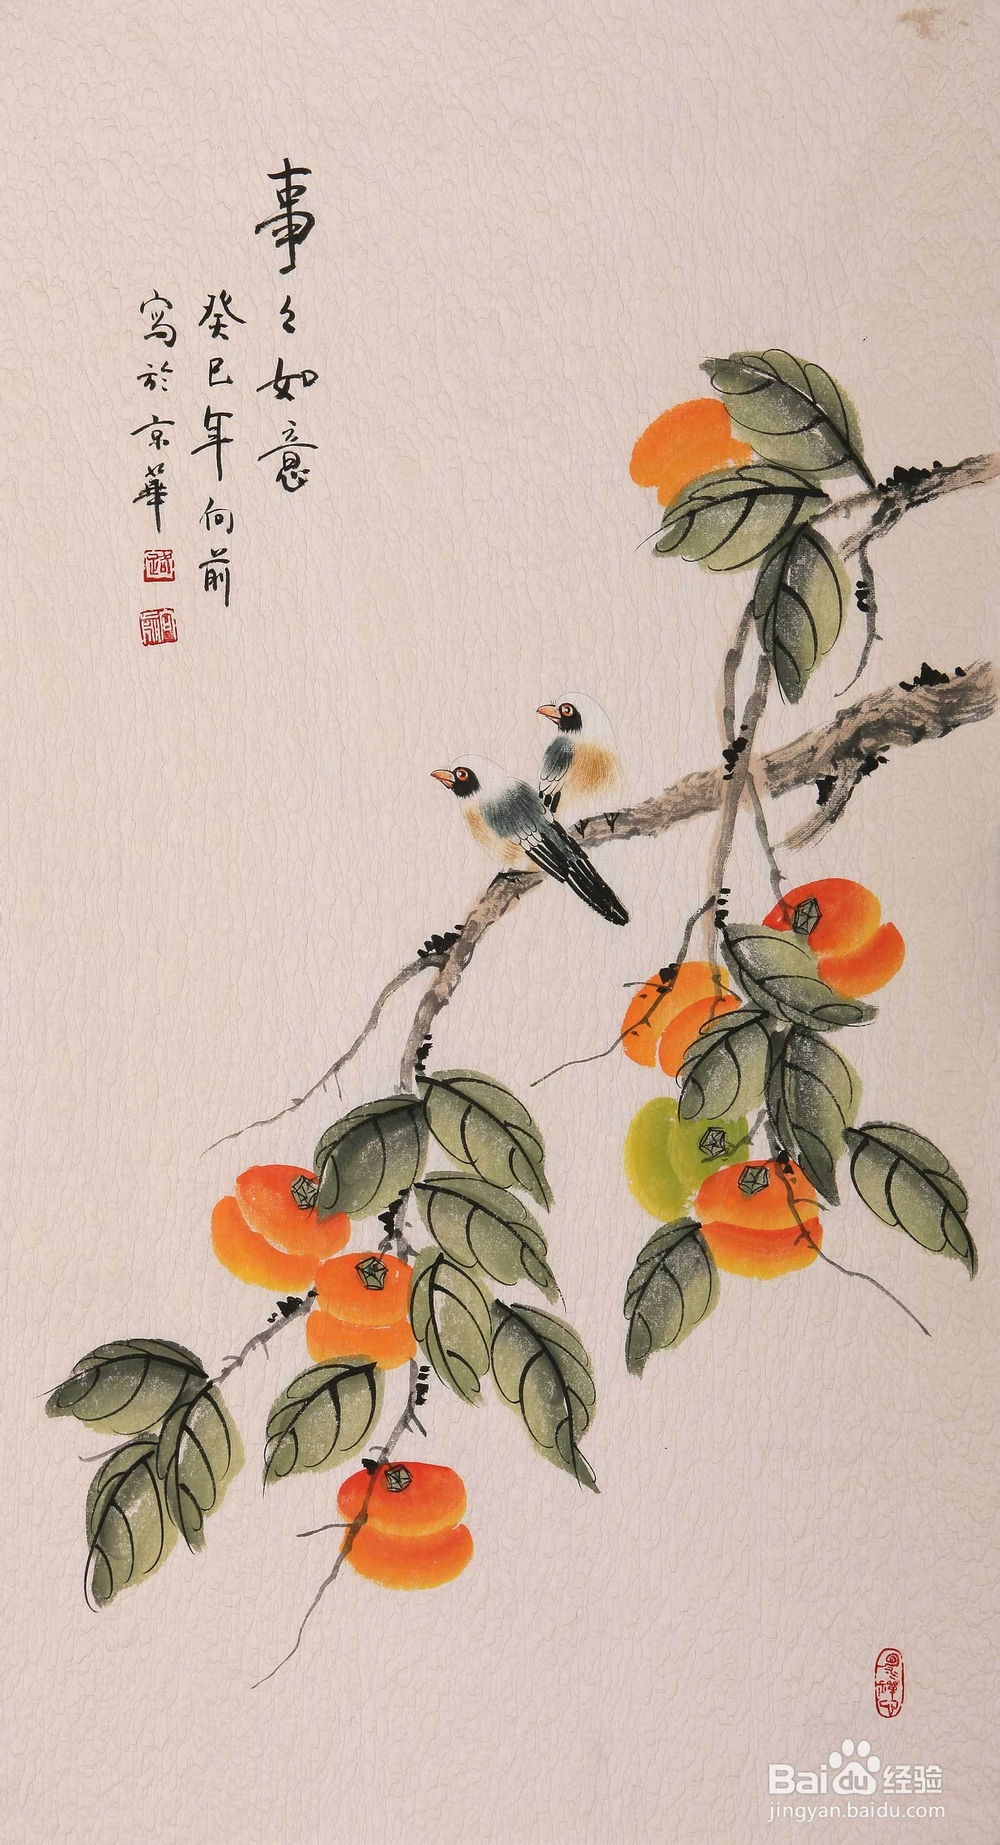 事々如意
癸巳年向前
寫於京華
Baidu经验
jingyan.baidu.com